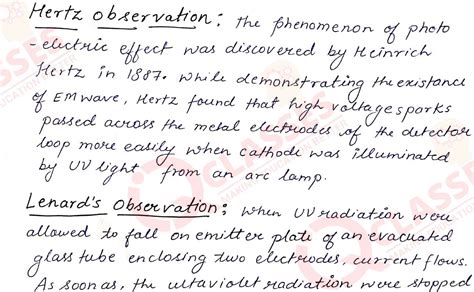 Hertz observation: the phenomenon of photo
-electric effect was discovered by Heinrich
Hertz in 1887. While demonstrating the existance
of EM wave, Hertz found that high voltage sparks
passed across the metal electrodes of the detector
loop more easily when cathode was illuminated
by UV light from an arc lamp.
Lenard's Observation: when UV radiation were
allowed to fall on emitter plate of an evacuated
glass tube enclosing two electrodes, current flows.
As soon as, the ultaviolet radiation were stopped
CLASSES